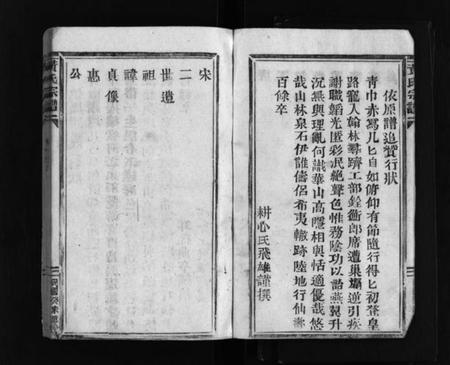 依原譜追贊行狀
青巾赤舄几匕自如俯仰有節隨行得匕初登皇
路寵入翰林尋躋工部銓衡郎席遭巢孼逆引疾
謝職韜光匿彩泯絶聲色惟務陰功以詒燕翼升
沉無與理亂何識華山高隱相與恬適優哉悠
哉山林泉石伊誰儔侶希夷轍跡陸地行仙壽
百餘卒
耕心氏飛雄謹撰
宋
二
世遺
祖
諱
貞像
惠
公
黃氏宗譜